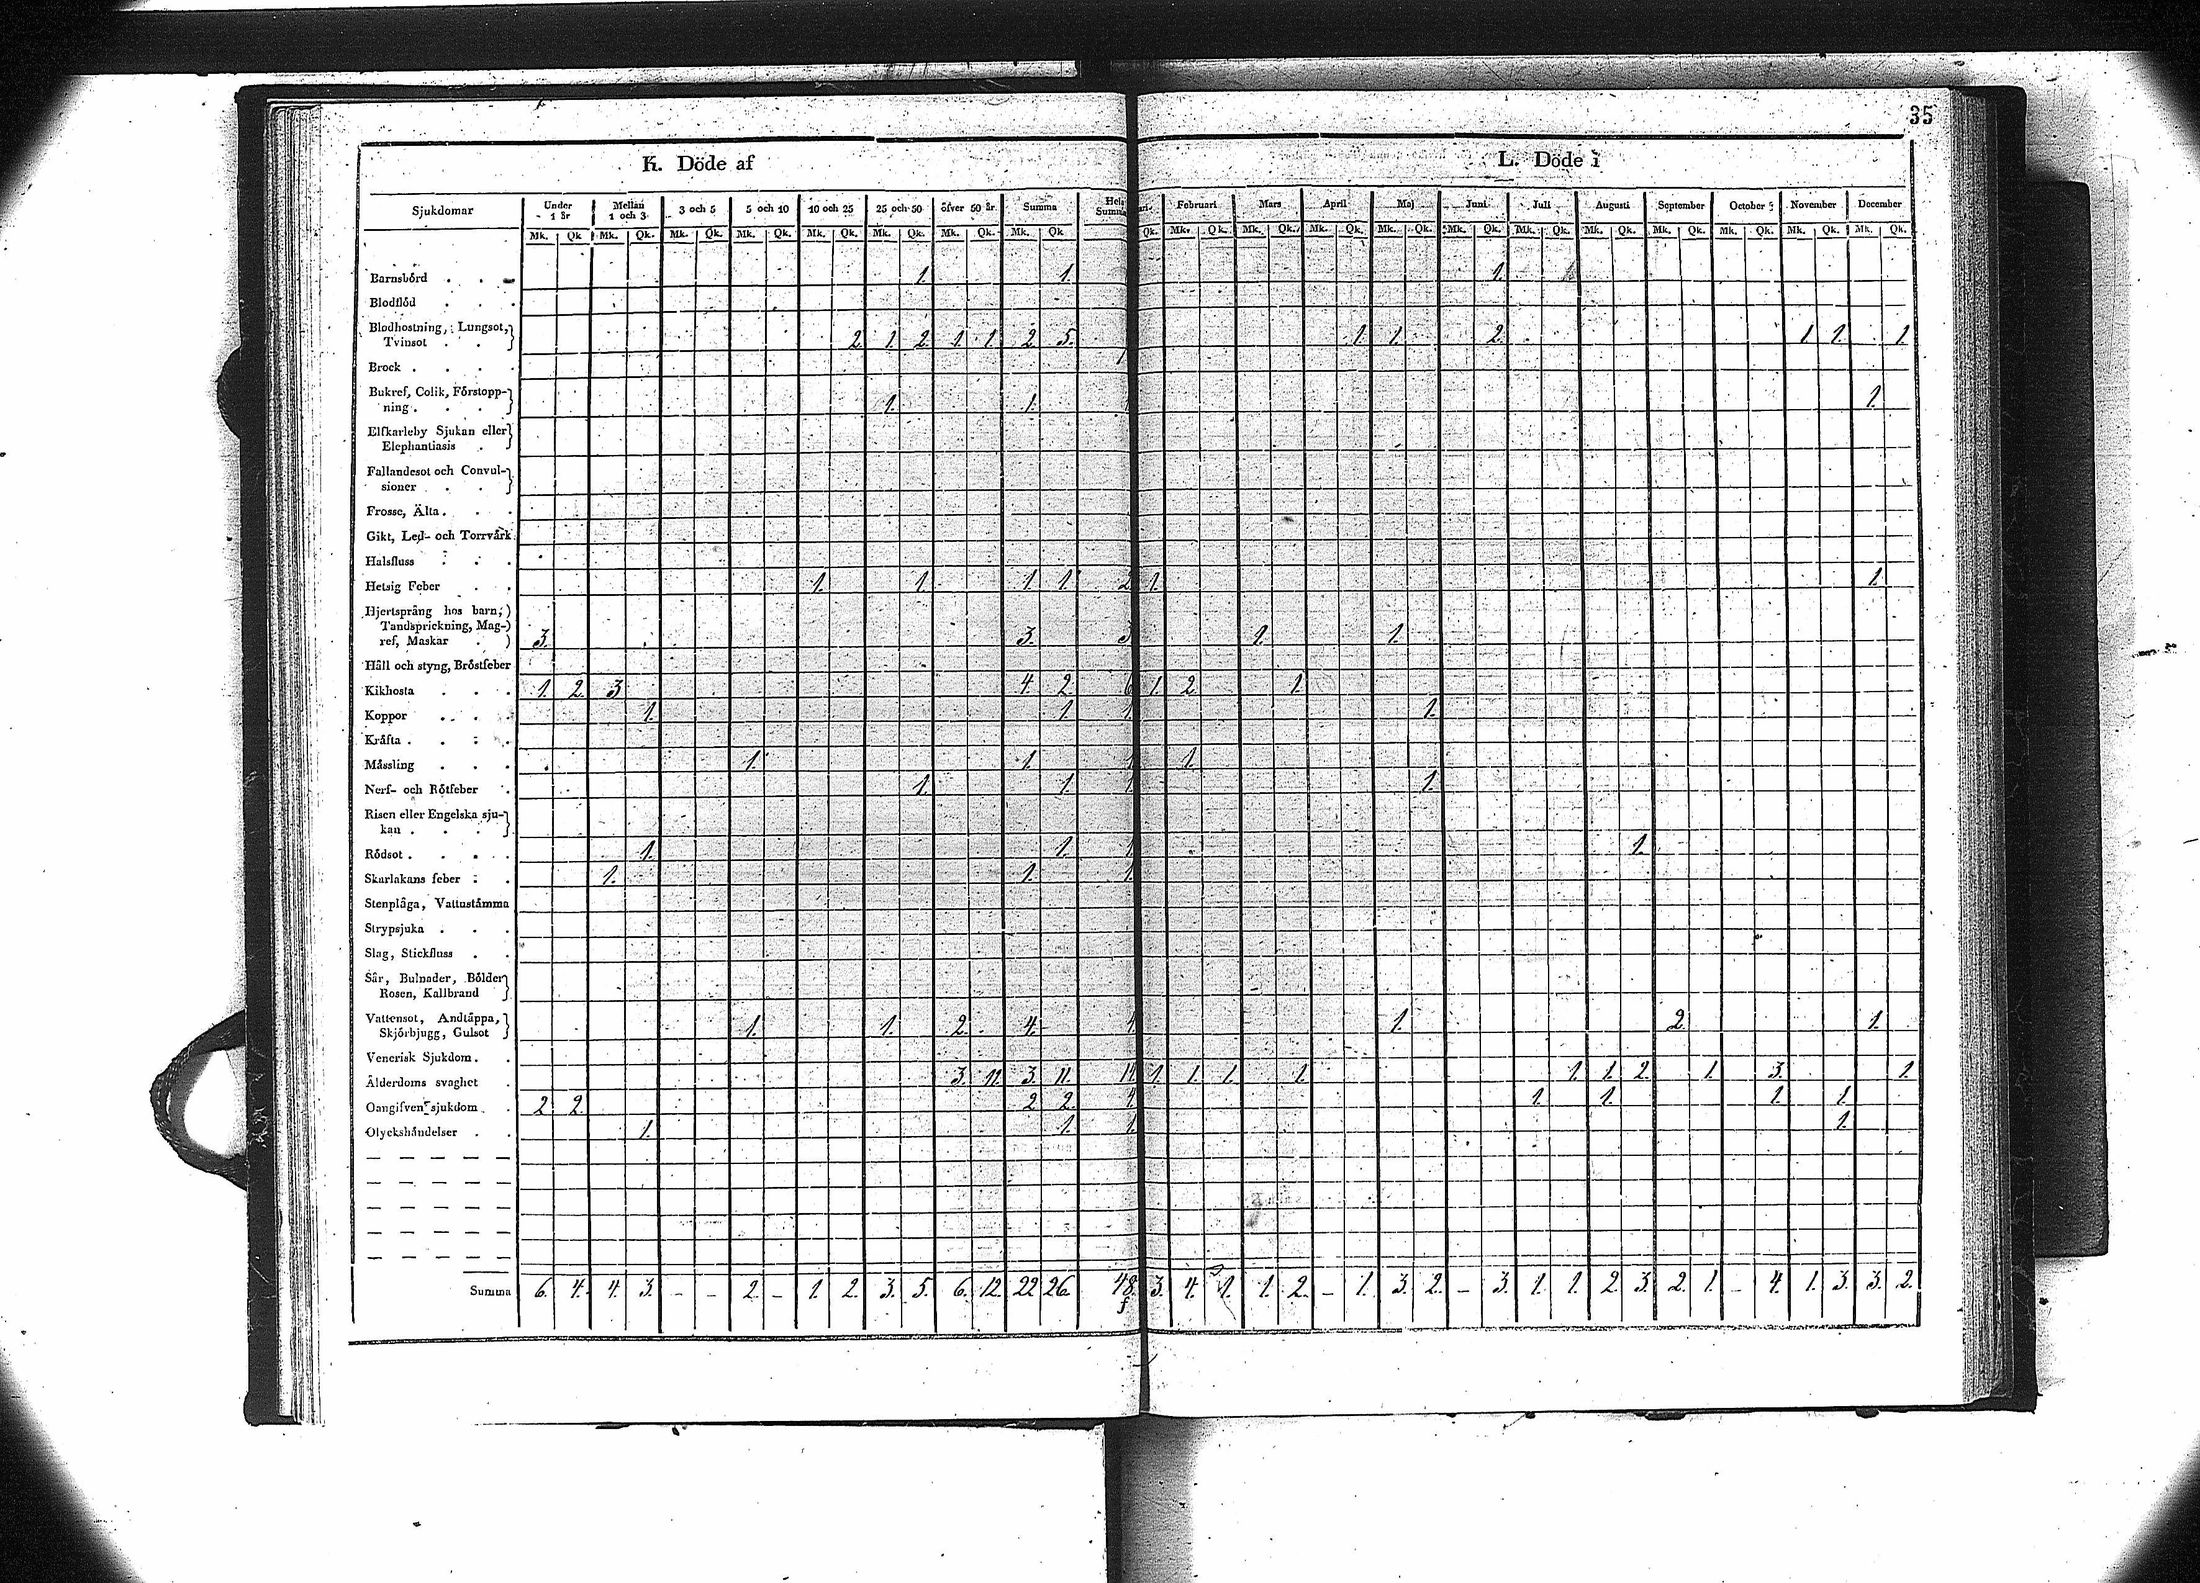 35
K. Döde af
L. Döde i
Sjukdomar Under 1 år Mellan 1 och 3 3 och 5 5 och 10 10 och 25 25 och 50 öfver 50 år Summa Hela Summa Februari Mars April Maj Juni Juli Augusti September October November December
Mk. Qk. Mk. Qk. Mk. Qk. Mk. Qk. Mk. Qk. Mk. Qk. Mk. Qk. Mk. Qk. Qk. Mk. Qk. Mk. Qk. Mk. Qk. Mk. Qk. Mk. Qk. Mk. Qk. Mk. Qk. Mk. Qk. Mk. Qk. Mk. Qk. Mk. Qk.
Barnsbörd 1. 1. 1.
Blodflöd
Blodhostning, Lungsot,
Tvinsot 2. 1. 2. 1. 1. 2. 5. 1. 1. 2. 1. 1. 1.
Brock
Bukref, Colik, Förstopp-
ning 1. 1. 1.
Elfkarleby Sjukan eller
Elephantiasis
Fallandesot och Convul-
sioner
Frosse, Älta
Gikt, Led- och Torrvärk
Halsfluss
Hetsig Feber 1. 1. 1. 1. 2 1. 1.
Hjertsprång hos barn,
Tandsprickning, Mag-
ref, Maskar 3. 3. 3 1. 1.
Håll och styng, Bröstfeber
Kikhosta 1. 2. 3 4. 2. 6 1. 2. 1.
Koppor 1. 1. 1. 1.
Kräfta
Mässling 1. 1. 1 1.
Nerf- och Rötfeber 1. 1. 1 1.
Risen eller Engelska sju-
kan
Rödsot 1. 1. 1 1.
Skarlakans feber 1. 1. 1.
Stenplåga, Vattustämma
Strypsjuka
Slag, Stickfluss
Sår, Bulnader, Bölder
Rosen, Kallbrand
Vattensot, Andtäppa,
Skjörbjugg, Gulsot 1. 1. 2. 4. 4 1. 2. 1.
Venerisk Sjukdom
Ålderdoms svaghet 3. 11. 3. 11. 14 1. 1. 1. 1. 1. 1. 2. 1. 3. 1.
Oangifven sjukdom 2. 2. 2 2. 4. 1. 1. 1. 1.
Olyckshändelser 1. 1. 1. 1.
Summa 6. 4. 4. 3. - - 2. - 1. 2. 3. 5. 6. 12. 22 26. 48. 3. 4. 1. 1. 2. - 1. 3. 2. - 3. 1. 1. 2. 3. 2. 1. - 4. 1. 3. 3. 2.